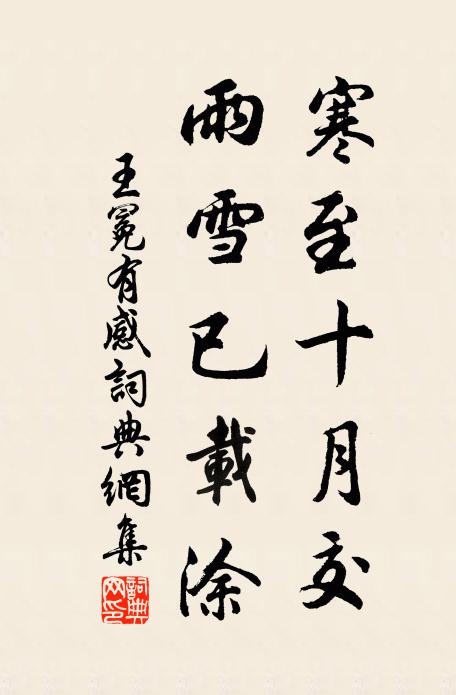 寒至十月交
雨雪已載涂
王冕有感詞典網集
詞典网印